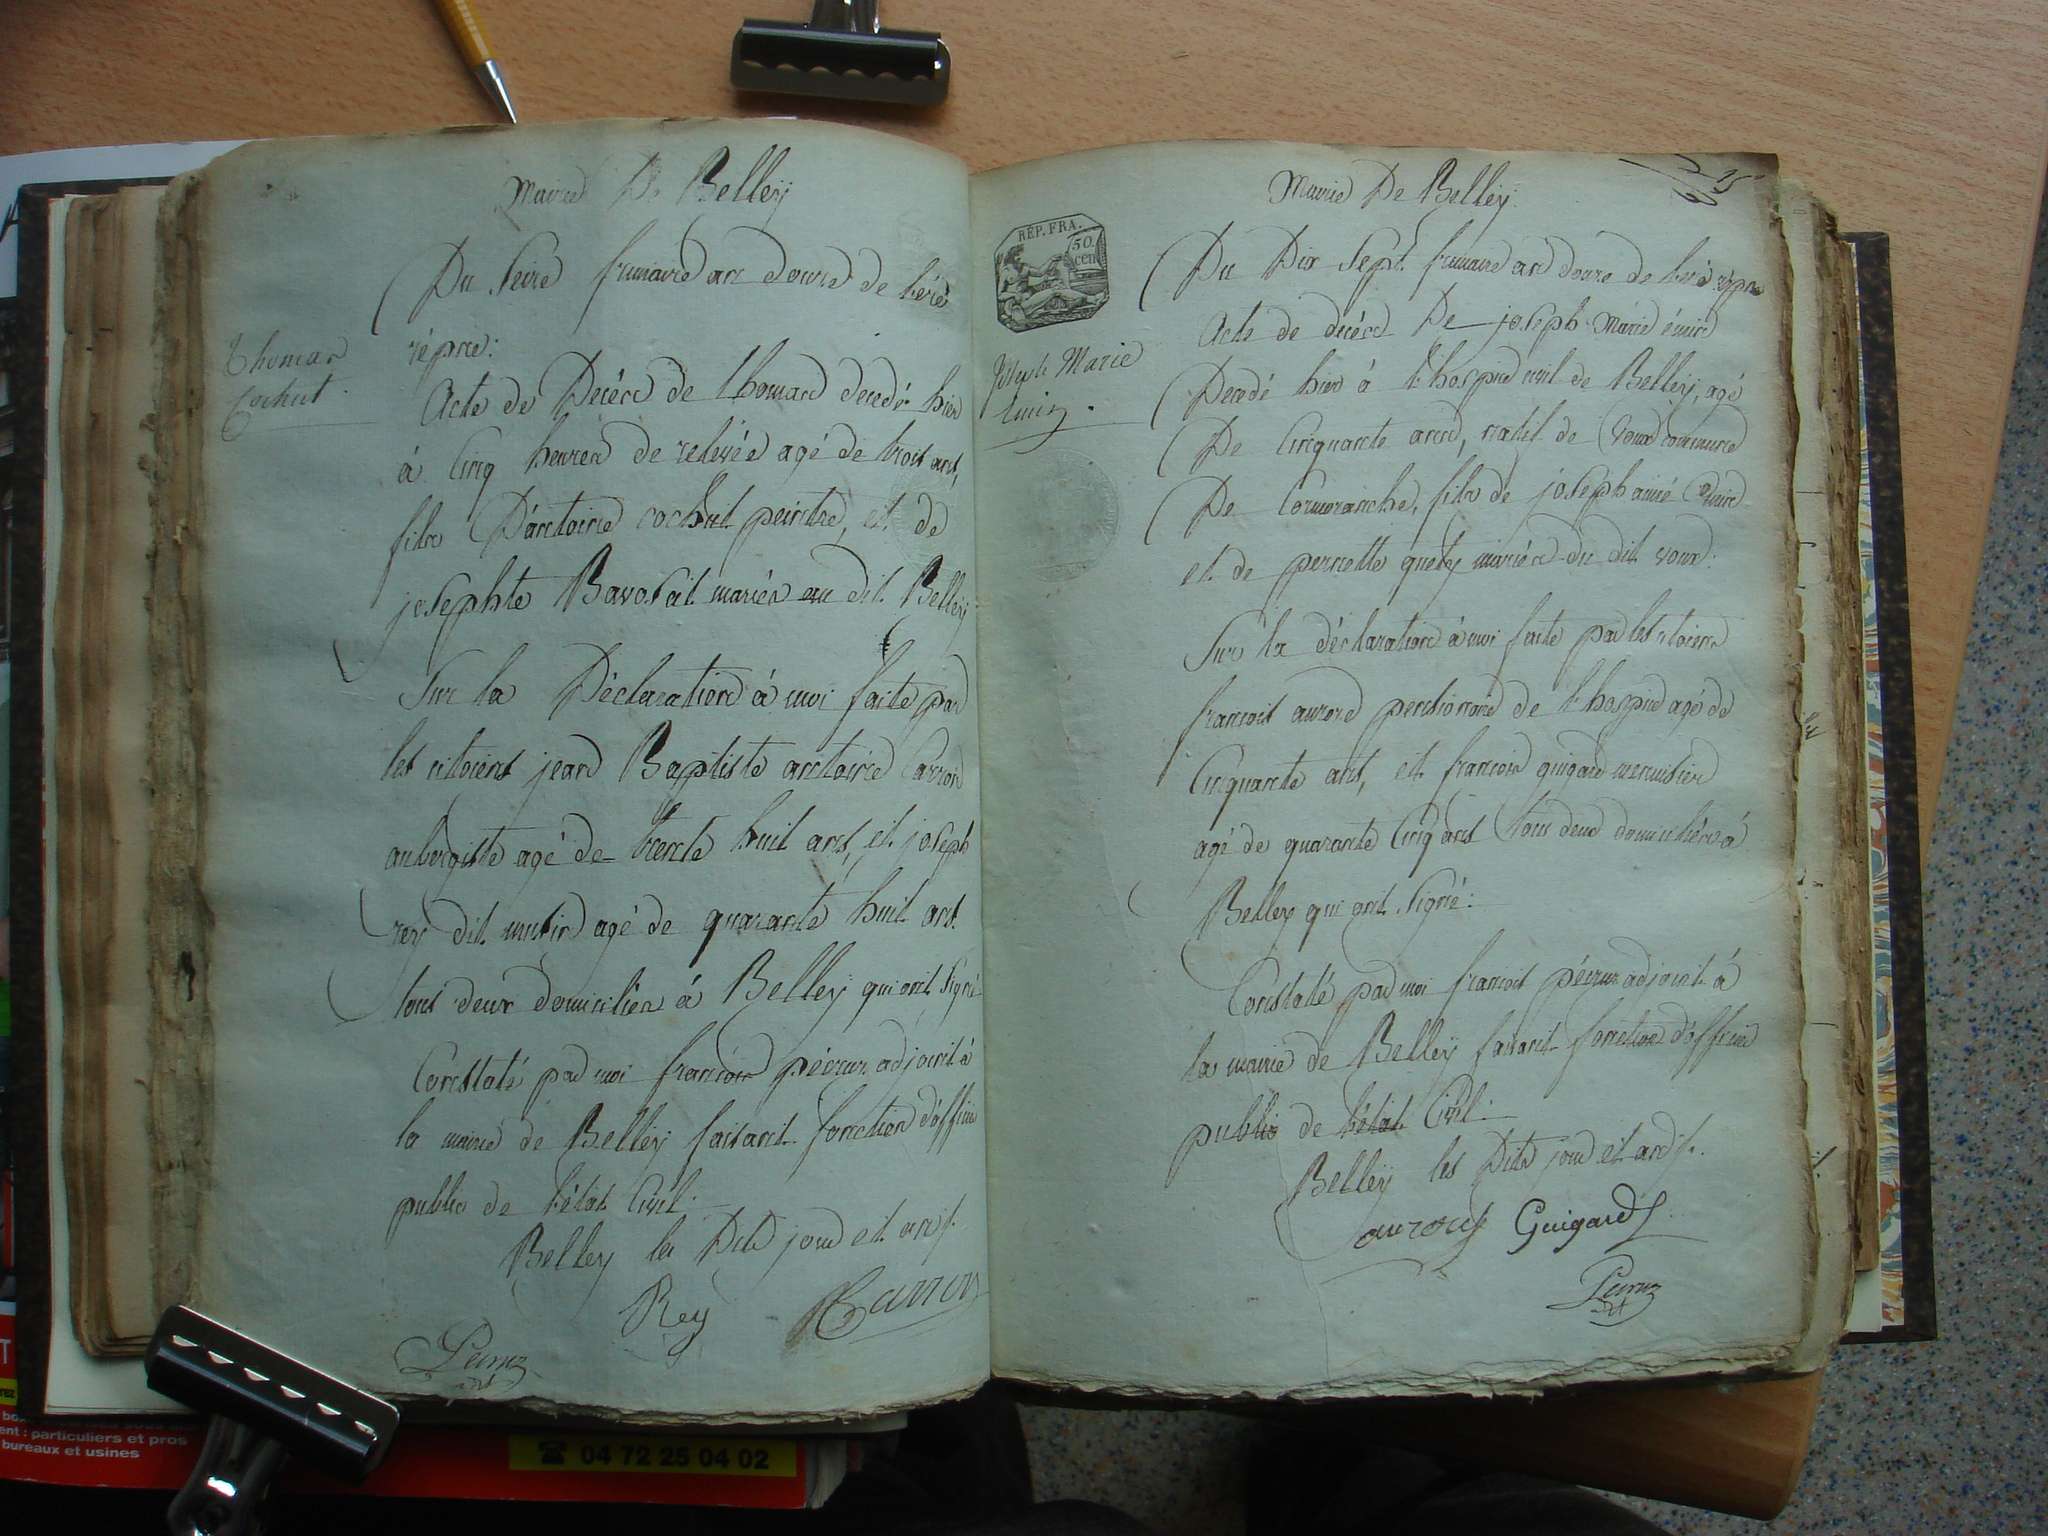 Mairie De Belleÿ
Du seize frimaire an douze de l'ère
répne:
Thomas
Cochut.
Acte de Décès de thomas decedé hier
à Cinq heures de relevée agé de trois ans,
fils D'antoine cochut peintre, et de
josephte Bavosat mariés au dit Belleÿ
Sur la Déclaration à moi faite par
les citoiens jean Baptiste antoine Carron
aubergiste agé de trente huit ans, et joseph
rey dit agé de quarante huit ans
tous deux domiciliés à Belleÿ qui ont signé
Constaté par moi françois adjoint à
la mairie de Belleÿ faisant fonction d'officier
public de l'état Civil.
Belleÿ les Dits jour et an
Rey Carron
Mairie De Belleÿ
REP. FRA.
50.
cen
Joseph Marie
Emin.
Du Dix Sept frimaire an douze de l'ère répne
Acte de décès De joseph Marie émin
Decedé hier à l'hospice civil de Belleÿ, agé
De Cinquante ans, natif de Voux commune
De Cormoranche, fils de joseph aimé Emin
et de pernette mariés du dit voux:
Sur la déclaration à moi faite par les citoiens
françois pensionné de l'hospice agé de
Cinquante ans, et françois guigard menuisier
agé de quarante Cinq ans tous deux domiciliés à
Belley qui ont signé:
Constaté par moi françois adjoint à
la mairie de Belleÿ faisant fonction d'officier
public de l'état Civil.
Belleÿ les Dits jour et an
Guigard
particuliers et pros
bureaux et usines
04 72 25 04 02